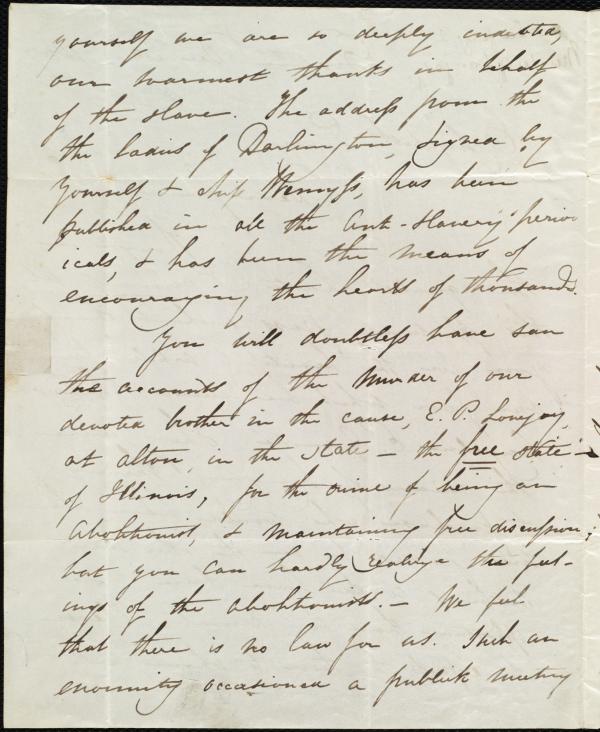 yourself we are so deeply indebted,
our warmest thanks in behalf
of the slave. The address from the
the ladies of Darlington, signed by
yourself & Miss Wemyss, has been
published in all the Anti-Slavery period
icals, & has been the means of
encouraging the hearts of thousands.
You will doubtless have seen
the accounts of the murder of our
devoted brother in the cause, E. P. Lovejoy,
at Alton, in the State — the free State —
of Illinois, for the crime of being an
Abolitionist, & maintaining free discussion;
but you can hardly realize the feel-
ings of the abolitionists. — We feel
that there is no law for us. Such an
enormity occasioned a publick meeting